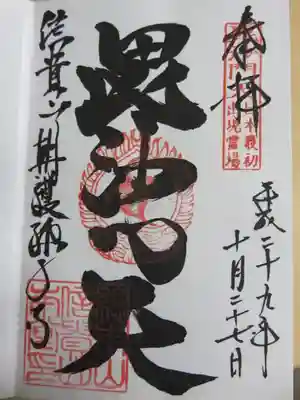 奉拝
平成二十九年
十月二十七日
毘沙門天
信貴山朝護孫子寺